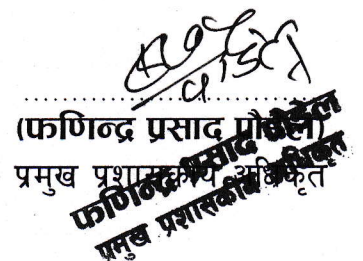 (फणिन्द्र प्रसाद पौडेल)
प्रमुख प्रशासकीय अधिकृत
फणिन्द्र प्रसाद पौडेल
प्रमुख प्रशासकीय अधिकृत